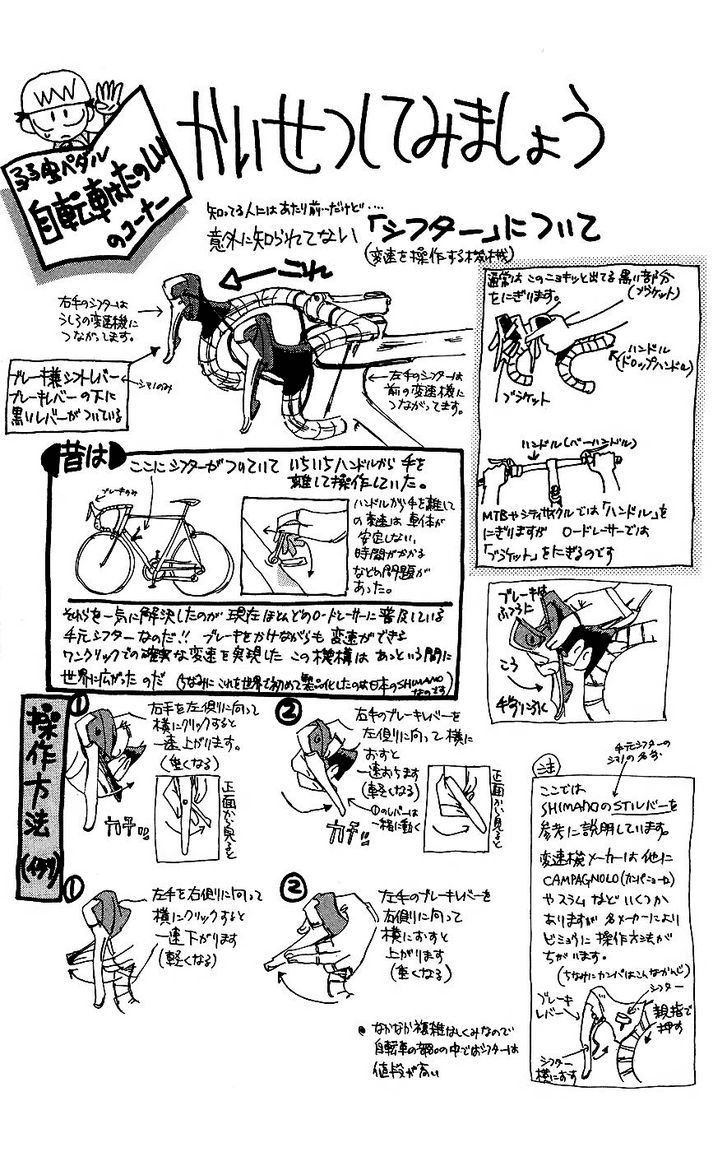 かいせつしてみましょう
弱虫ペダル
自転車はたのしい
のコーナー
知ってる人にはあたり前…だけど…
意外に知られてない「シフター」について
(変速を操作する機械)
これ
右手のシフターは
うしろの変速機に
つながってます。
ブレーキ兼シフトレバー
ブレーキレバーの下に
黒いレバーがついている
シマノのみ
左手のシフターは
前の変速機に
つながってます。
通常はこのニョキッと出てる黒い部分
(ブラケット)
をにぎります。
ハンドル
(ドロップハンドル)
ブラケット
ハンドル(バーハンドル)
MTBやシティサイクルでは「ハンドル」を
にぎりますが ロードレーサーでは
「ブラケット」をにぎるのです
昔は
ここにシフターがついていて いちいちハンドルから手を
離して操作していた。
ブレーキのみ
ハンドルから手を離して
の変速は 車体が
安定しない、
時間がかかる
などの問題が
あった。
それらを一気に解決したのが 現在ほとんどのロードレーサーに普及している
手元シフターなのだ!! ブレーキをかけながらも 変速ができる
ワンクリックでの確実な変速を実現した この機構は あっという間に
世界に広がったのだ
(ちなみに これを世界で初めて製品化したのは日本のSHIMANO
なのです)
ブレーキは
ふつうに
こう
手前に引く
操作方法
(例)
①
右手を左側りに向って
横にクリックすると
一速上がります。
(重くなる)
正面から見ると
カチ!!
②
右手のブレーキレバーを
左側りに向って横に
おすと
一速おちます
(軽くなる)
①のレバーは
一緒に動く
正面から見ると
カチ!!
①
左手を右側りに向って
横にクリックすると
一速下がります
(軽くなる)
②
左手のブレーキレバーを
右側りに向って
横におすと
上がります
(重くなる)
注
手元シフターの
シマノの名称
ここでは
SHIMANOのSTIレバーを
参考に説明しています。
変速機メーカーは他に
CAMPAGNOLO(カンパニョーロ)
やスラムなどいくつか
ありますが 各メーカーにより
ビミョウに操作方法が
ちがいます。
(ちなみにカンパはこんなかんじ)
ブレーキ
レバー
シフター
親指で
押す
シフター
横におす
●なかなか複雑なしくみなので
自転車の部品の中ではシフターは
値段が高い